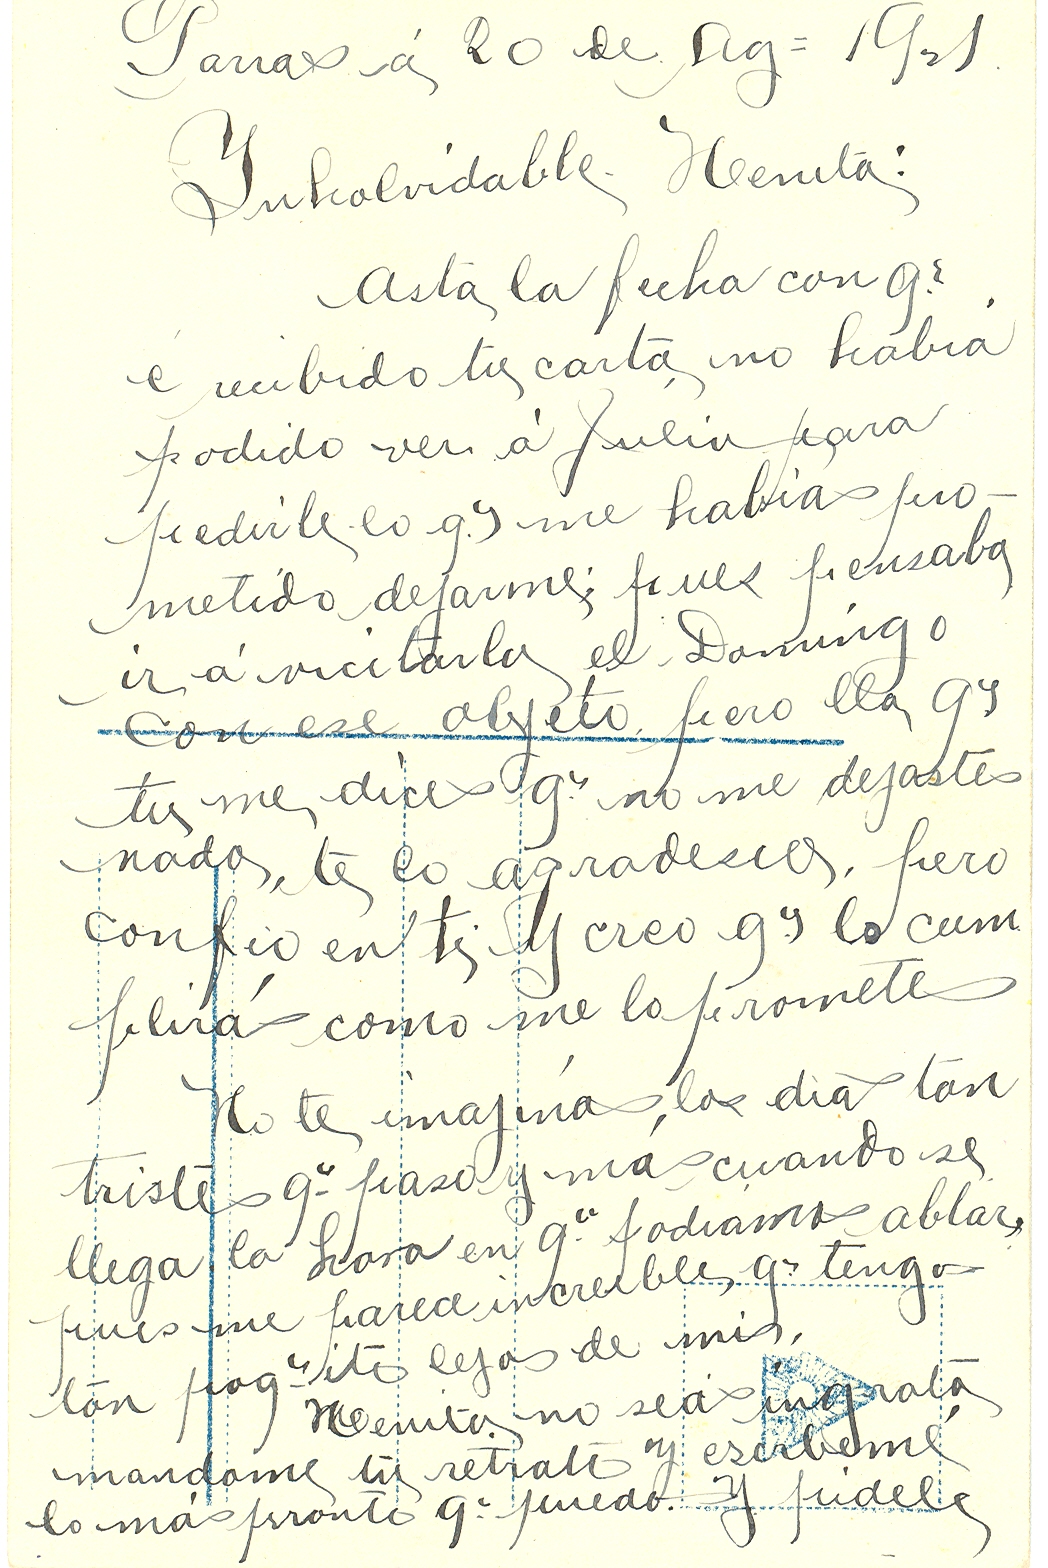 Parras á 20 de Ag= 1921.
Ynholvidable Nenita:
Asta la fecha con qe
é recibido tu carta, no habia
podido ver á Julia para
pedirle lo qe me habias pro-
metido dejarme; pues pensaba
ir á vicitarla el Domingo
con ese objeto, pero lla qe
tu me dices qe no me dejastes
nada, te lo agradesco, pero
confio en ti, y creo qe lo cum
plirás como me lo prometes
No te imajinas los dia tan
tristes qe paso y más cuando se
llega la hora en qe podiamos ablar,
pues me parece increible, qe tenga
tan poqeito lejos de mis,
Nenita, no seas ingrata
mandame tu retrato y escribemé
lo más pronto qe puedo. Y pidele